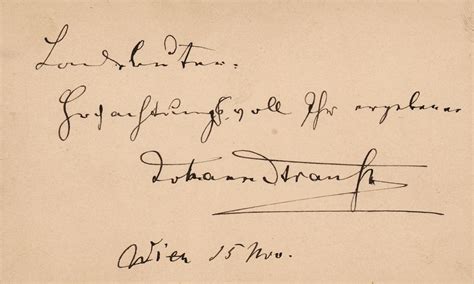 Hochachtungsvoll Ihr ergebener
Johann Strauss
Wien 15 Nov.